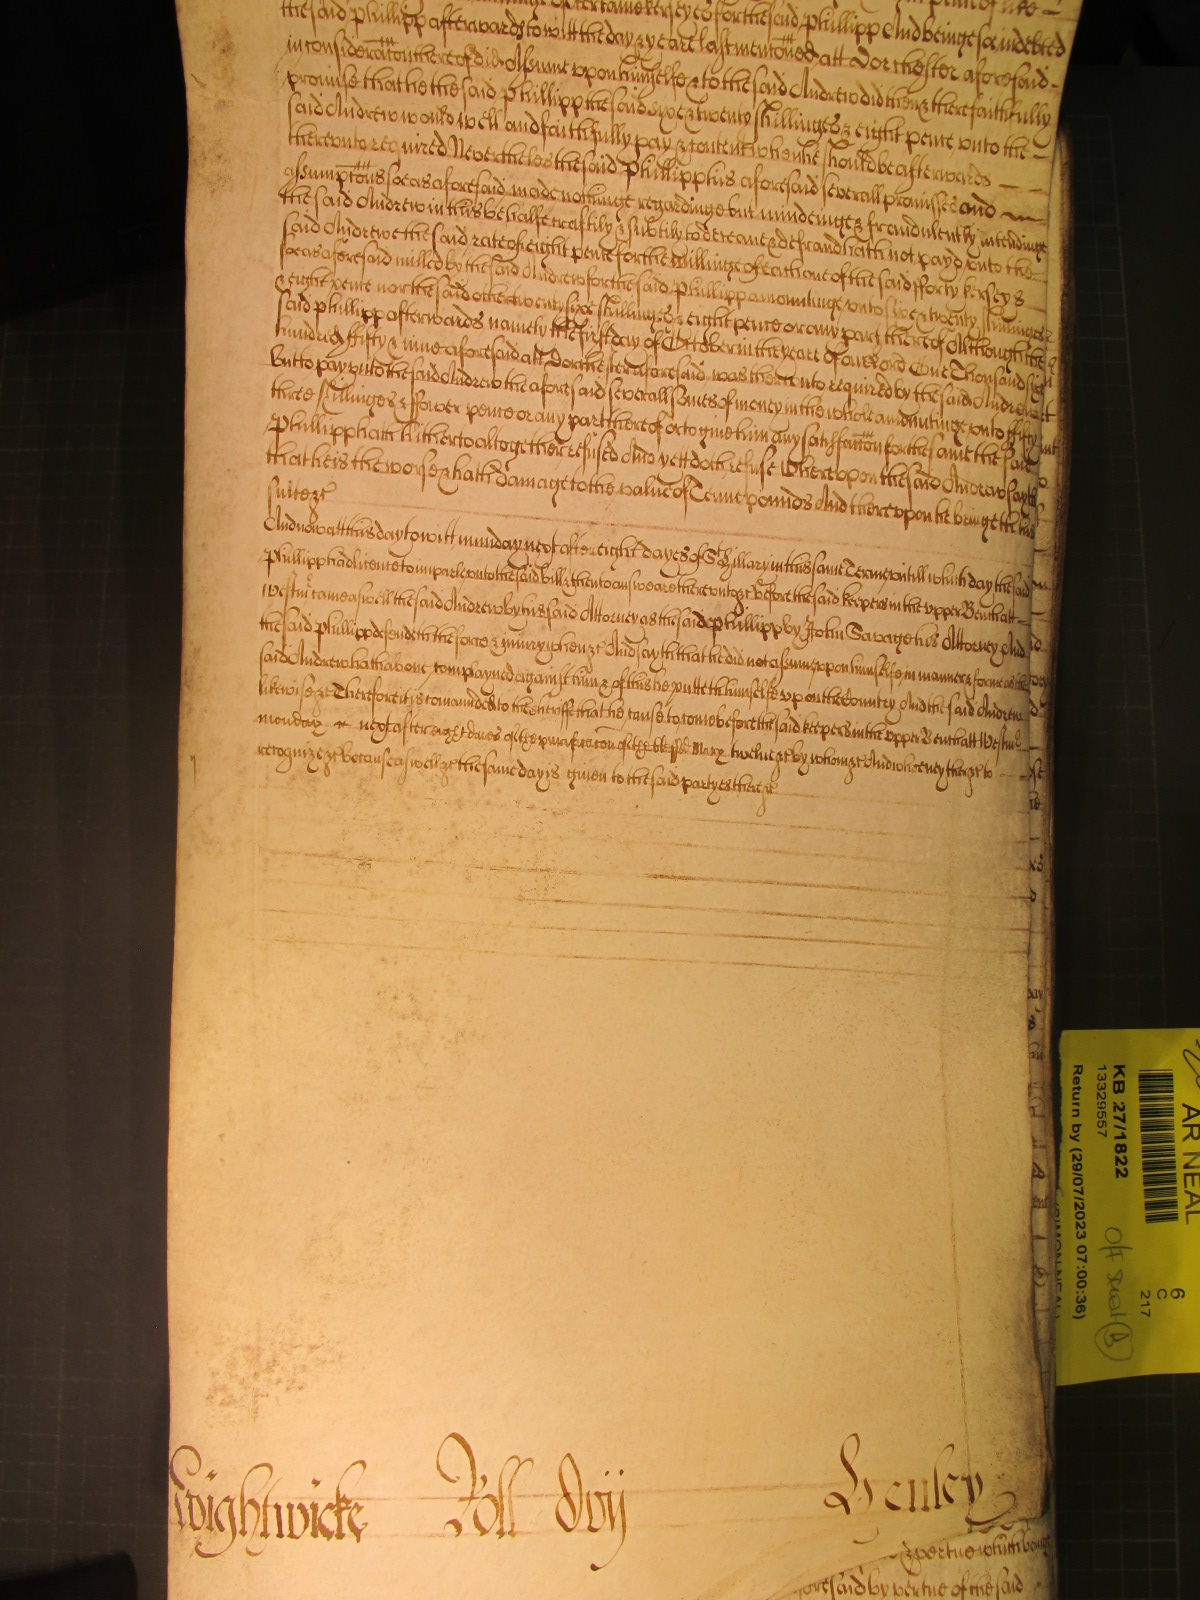 certaine kerseyes for the said Phillipp And beinge soe indebted
the said Phillipp afterwards to witt the day & yeare last mentoned att Dorchester aforesaid
in consideratōn thereof did Assume upon himselfe & to the said Andrew did then & there faithfully
promise that he the said Phillipp the said sixe & twenty shillinges & eight pence unto the
said Andrew would well and faithfully pay & content when he should be afterwards
thereunto required Neverthelesse the said Phillipp his aforesaid severall promisses and
assumptōns soe as aforesaid made nothinge regardinge but mindeinge & fraudulently intendinge
the said Andrew in this behalfe craftily & subtily to deceave & defraud hath not payd unto the
said Andrewe the said rate of eight pence for the millinge of each one of the said fforty kerseys
soe as aforesaid milled by the said Andrew for the said Phillipp amountinge unto sixe & twenty shillinges
& eight pence nor the said other twenty sixe shillinges & eight pence or any part thereof Althought the
said Phillipp afterwards namely the first day of October in the yeare of our Lord One Thousand six
hundred fifty & nine aforesaid att Dorchester aforesaid was thereunto required by the said Andrew
but to pay unto the said Andrew the aforesaid severall somes of money in the whole amountinge unto fifty
three shillinges & ffower pence or any part thereof or to give him any satisfactōn for the same the said
Phillipp hath hitherto altogether refused And yett doth refuse Whereupon the said Andrew sayth
that he is the worse & hath damage to the value of Tenne pounds And thereupon he bringeth his
suite &c
And now att this day to witt munday next after eight dayes of St Hillary in this same Terme untill which day the said
Phillipp had licence to imparle unto the said bill & then to answeare thereunto &c before the said keepers in the upper Bench att
Westm̄ came aswell the said Andrew by his said Attorney as the said Phillipp by John Savage his Attorney And
the said Phillipp defendeth the force & injury when &c And sayth that he did not assume upon himselfe in manner & forme as the
said Andrew hath above complayned against him & of this he putteth himselfe upon the Country And the said Andrew
likewise &c Therefore it is comaunded to the sheriffe that he cause to come before the said keepers in the upper Bench att Westm̄
monday next after eight dayes of the purificatōn of the blessed Mary twelve &c by whom &c And who neyther &c to
recognize &c because aswell &c the same day is given to the said partyes there &c
Wightwicke Roll Dvij Henley
& pertue which
foresaid by vertue of the said
AR NEAL
KB 27/1822
13329557
Return by (29/07/2023 07:00:36)
6
C
217